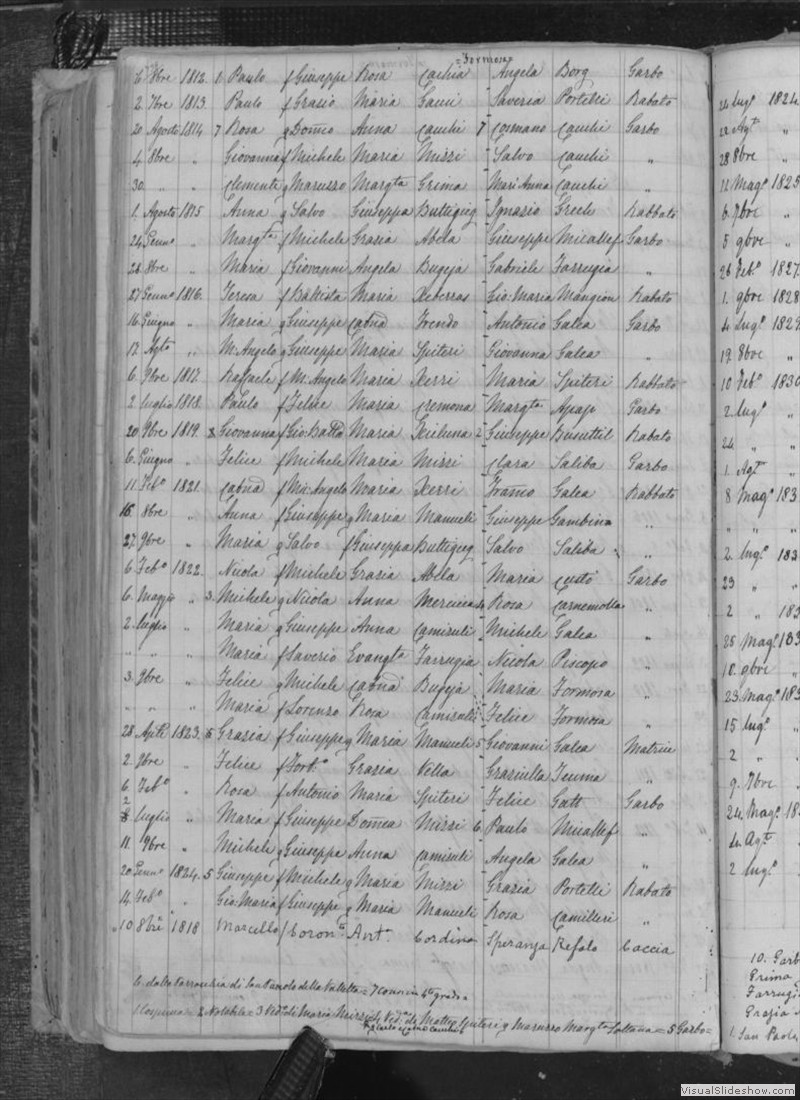 = Formosa
6 Xbre 1812. 1 Paulo f Giuseppe Rosa Cachia Angela Borg Garbo
2. 7bre 1813. Paulo f Grasio Maria Gauci Saveria Portelli Rabato
20 Agosto 1814 7 Rosa g Domco Anna Cauchi 7 Cosmano Cauchi Garbo
4 8bre " Giovanna f Michele Maria Mizzi Salvo Cauchi "
30. " " Clemente g Maruzzo Margta Grima Mari Anna Cauchi "
1. Agosto 1815 Anna g Salvo Giuseppa Buttigieg Ignazio Grech Rabbato
24 Genno " Margta f Michele Grazia Abela Giuseppe Micallef Garbo
28 8bre " Maria f Giovanni Angela Bugeja Gabriele Farrugia "
27 Genno 1816. Teresa f Battista Maria Xeberras Gio: Maria Mangion Rabato
16 Giugno " Maria g Giuseppe Trendo Antonio Galea Garbo
17. Agto " M. Angelo g Giuseppe Maria Spiteri Giovanna Galea "
6. 9bre 1817. Raffaele f M. Angelo Maria Xerri Maria Spiteri Rabbato
2 luglio 1818. Paulo f Felice Maria Cremona Margta Apap Garbo
20 9bre 1819. 3 Giovanna f Gio: Batta Maria Xicluna 2 Giuseppe Busuttil Rabato
6. Giugno " Felice f Michele Maria Mizzi Clara Saliba Garbo
11. Febo 1821. f Mic: Angelo Maria Xerri Franco Galea Rabbato
16. 8bre " Anna f Giuseppe g Maria Manueli Giuseppe Gambina "
27. 9bre " Maria g Salvo f Giuseppa Buttigieg Salvo Saliba "
6 Febo 1822. Nicola f Michele Grazia Abela Maria Custò Garbo
6. Maggio " 3. Michele g Nicola Anna Mercieca 4 Rosa Carnemolla "
2. luglio " Maria g Giuseppe Anna Camisuli Michele Galea "
" " " Maria f Saverio Evangta Farrugia Nicola Piscopo "
3. 9bre " Felice g Michele Bugeja Maria Formosa "
" " " Maria f Lorenzo Rosa Camisuli Felice Formosa "
28 Aple 1823. 5 Grazia f Giuseppe g Maria Manueli 5 Giovanni Galea Matrice
2. 9bre " Felice f Forto Grazia Vella Graziulla Teuma "
6 Febo " Rosa f Antonio Maria Spiteri Felice Gatt Garbo
2 luglio " Maria f Giuseppe Domca Mizzi 6 Paulo Micallef "
11. 9bre " Michele g Giuseppe Anna Camisuli Angela Galea "
20 Genno 1824. 5 Giuseppe f Michele g Maria Mizzi Grazia Portelli Rabato
14. Febo " Gio: Maria f Giuseppe g Maria Manueli Rosa Camilleri "
10 8bre 1818 Marcello f Coron Anta Cordina Speranza Refalo Caccia
6. dalla Parrocchia di San Paolo della Valletta = 7 Consan 4to grado
= 2 Notabile = 3 Veda di Maria Mizzi = 4 Vedo di Matteo Spiteri g Maruzzo Margta Sultana = 5 Garbo =
24 lugo 1824
22 Agto "
28 8bre "
12 Mago 1825
6. 7bre "
5 9bre "
26 Febo 1827.
1. 9bre 1828
4 lugo 1829
19 8bre "
10 Febo 1830
2. lugo "
24 " "
1. Agto "
8 Mago 183
" " "
2. lugo 183
23 " "
2 " 183
25 Mago 183
18. 9bre "
23. Mago 183
15 lugo "
2 " "
9. 7bre "
24. Mago 18
4. Agto "
2 lugo "
10. Garb
Grima
Farrugia
Grazia
1. San Paolo
VisualSlideshow.com